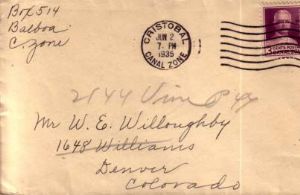 Box 514
Balboa
C. Zone
CRISTOBAL
JUN 2
7-PM
1935
CANAL ZONE
2144 Vine
Mr W. E. Willoughby
1648 Williams
Denver
Colorado